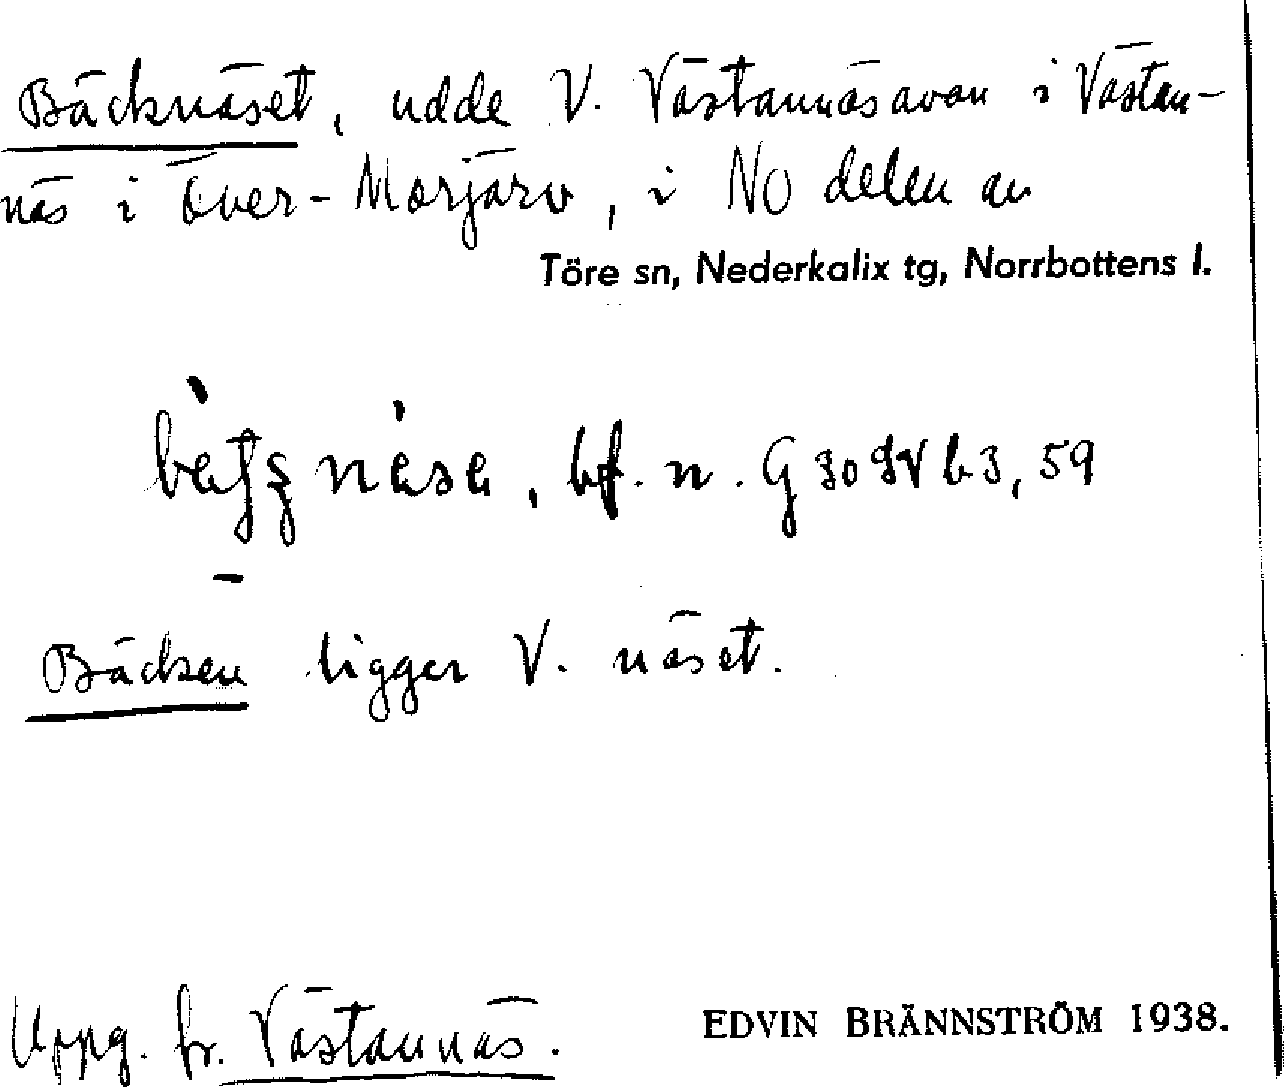 Bäcknäset, udde V. Västannäsavan i Västan-
näs i Över-Morjärv, i NO delen av
Töre sn, Nederkalix tg, Norrbottens l.
bf. n. G 30 b3, 59
Bäcken ligger V. näset.
Uppg. fr. Västannäs.
EDVIN BRÄNNSTRÖM 1938.